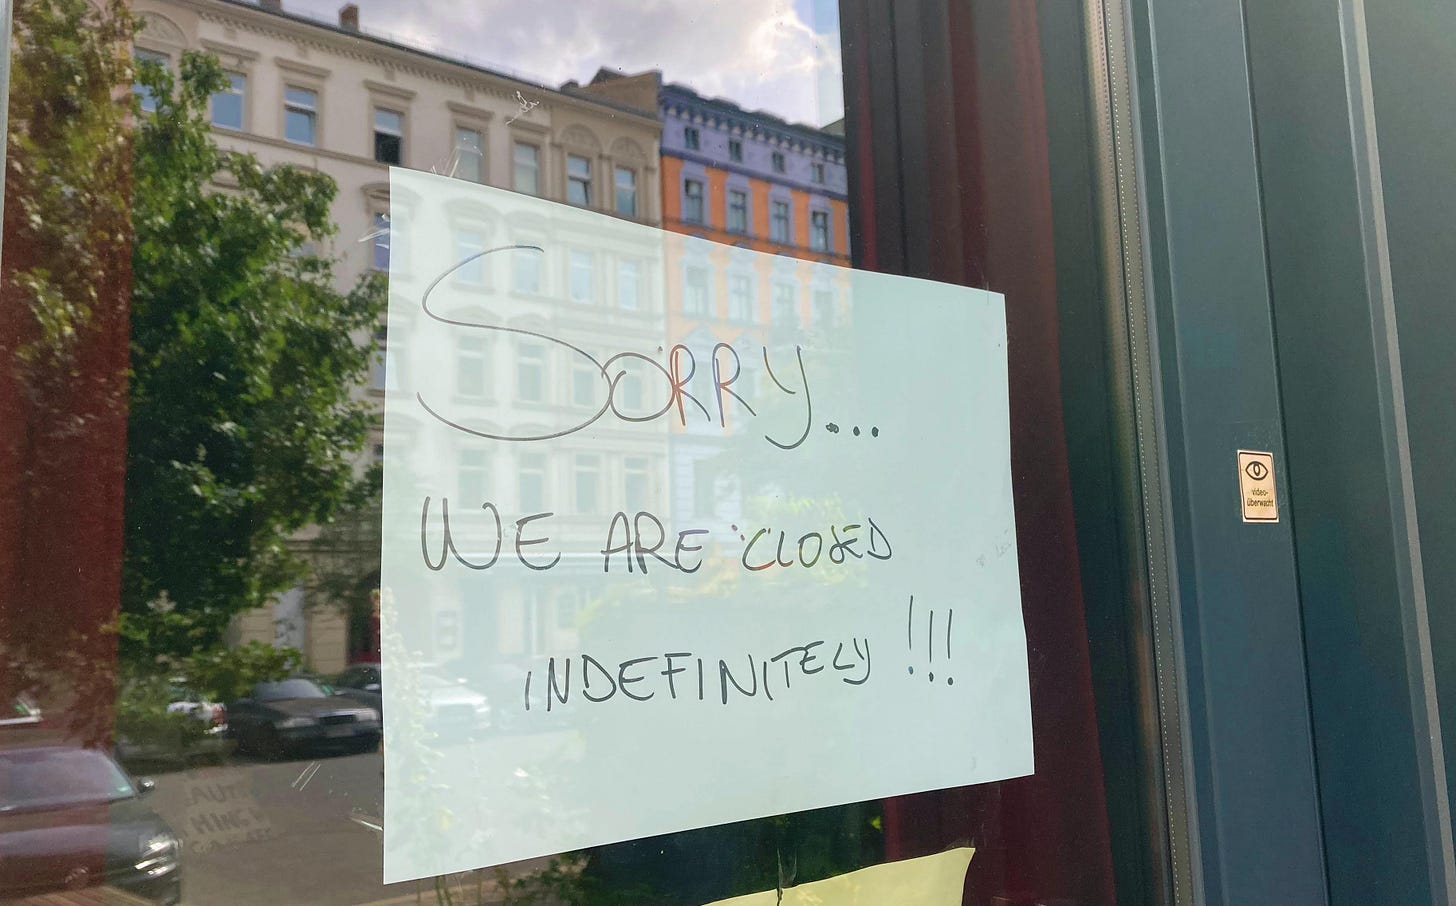 SORRY...
WE ARE CLOSED
INDEFINITELY !!!
video-
überwacht